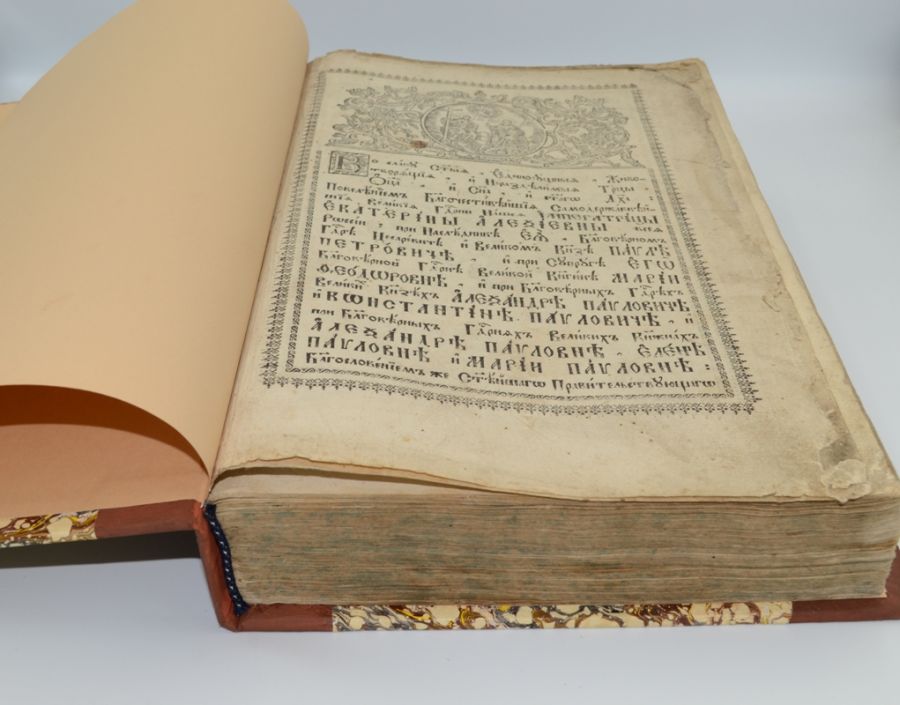 Во славу Ст҃ыѧ, Єдиносꙋщныѧ, Живо-
творѧщїѧ, и Нераздѣлимыѧ Трⷪ҇цы,
Ѻц҃а, и Сн҃а, и ст҃агѡ Дх҃а:
Повелѣнїемъ Бл҃гочестивѣйшїѧ Самодержавнѣй-
шїѧ Великїѧ Гдⷭ҇рни нашеѧ Імператрицы
ЄКАТЕРІНЫ АЛЕѮІЕВНЫ всеѧ
Рѡссїи: при Наслѣдникѣ ЄѦ, Бл҃говѣрномъ
Гдⷭ҇рѣ Цесаревичѣ и Великомъ Кнѧ҃зѣ ПАѴЛѢ
ПЕТРО́ВИЧѢ, и при Сꙋпрꙋгѣ ЄГѠ
Бл҃говѣрной Гдⷭ҇рнѣ Великой Кнѧ҃гинѣ МАРІИ
ѲЕОДѠРОВНѢ, и при Бл҃говѣрныхъ Гдⷭ҇рѣхъ
Великихъ Кнѧ҃зѣхъ АЛЕѮАНДРѢ ПАѴЛОВИЧѢ
и КѠНСТАНТІНѢ ПАѴЛОВИЧѢ, и
при Бл҃говѣрныхъ Гдⷭ҇рнѧхъ Великихъ Кнѧжнахъ
АЛЕѮАНДРѢ ПАѴЛОВНѢ, ЄЛЕНѢ
ПАѴЛОВНѢ и МАРІИ ПАѴЛОВНѢ:
Бл҃гословенїемъ же Ст҃ѣйшагѡ Правительствꙋющагѡ